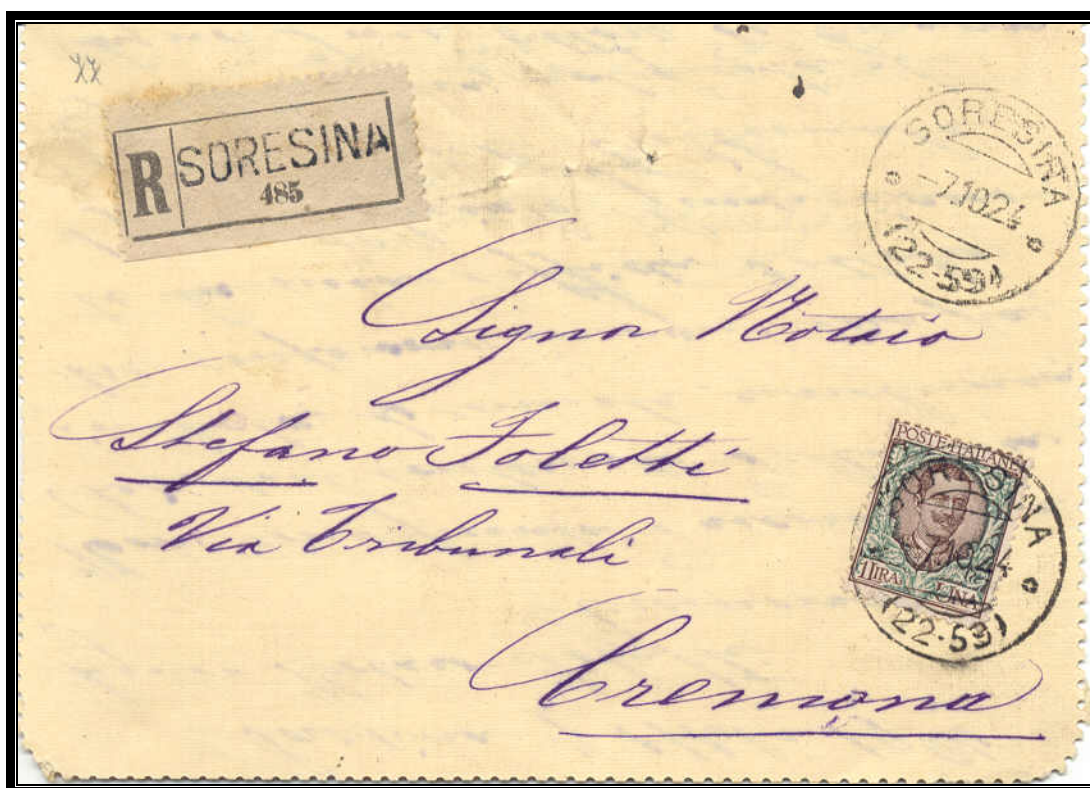 R SORESINA
485
SORESINA
-7.10.24
(22-59)
Signor Notaio
Stefano Foletti
Via Tribunali
Cremona
POSTE ITALIANE
SORESINA
7.10.24
1 LIRA UNA
(22-59)